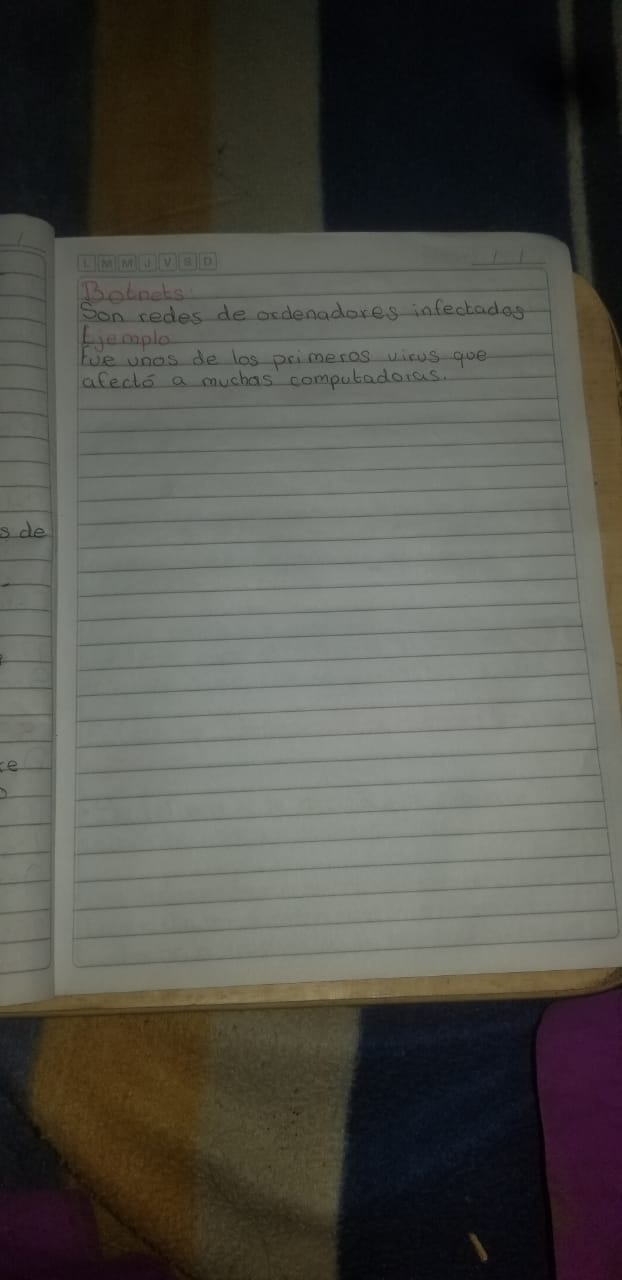 s de
re
L M M J V S D
/ /
Botnets:
Son redes de ordenadores infectados
Ejemplo
Fue unos de los primeros virus que
afectó a muchas computadoras.